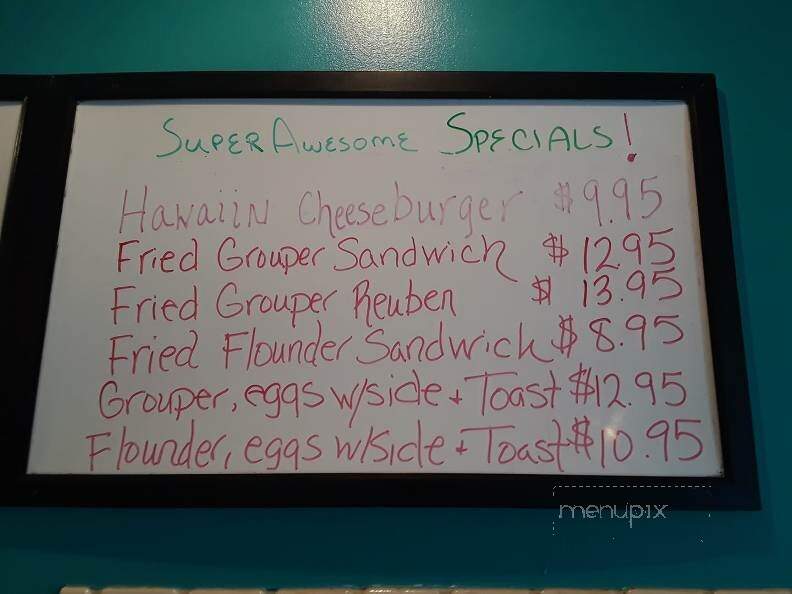 SUPER AWESOME SPECIALS!
Hawaiin Cheeseburger $9.95
Fried Grouper Sandwich $12.95
Fried Grouper Reuben $13.95
Fried Flounder Sandwich $8.95
Grouper, eggs w/side + Toast $12.95
Flounder, eggs w/side + Toast $10.95
menupix